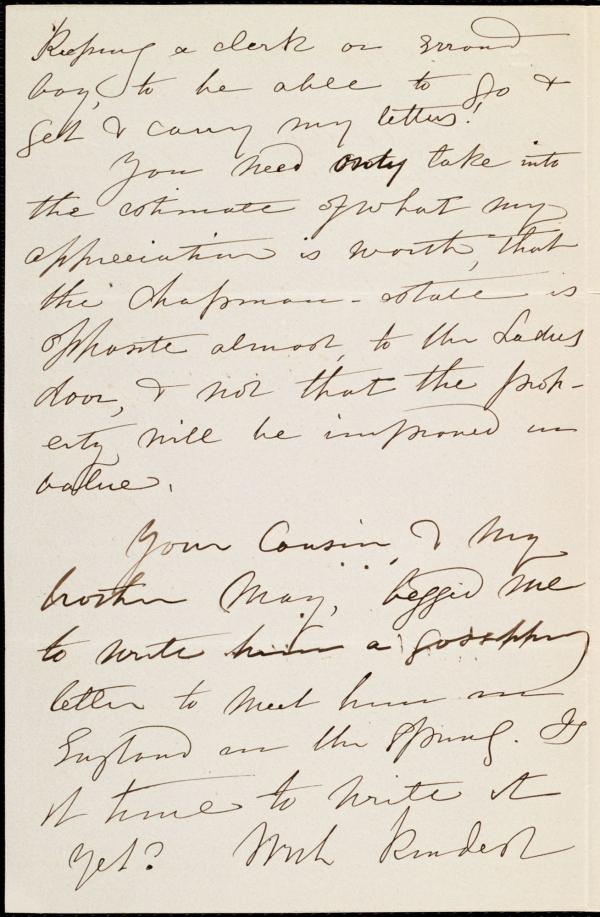 Keeping a clerk or errand
boy, to be able to go &
get & carry my letters!
You need only take into
the estimate of what my
appreciation is worth, that
the Chapman-estate is
opposite almost, to the Ladies
door, & not that the prop-
erty will be improved in
value.
Your Cousin, & my
brother May, begged me
to write him a gossipping
letter to meet him in
England in the Spring. Is
it time to write it
yet? With kindest